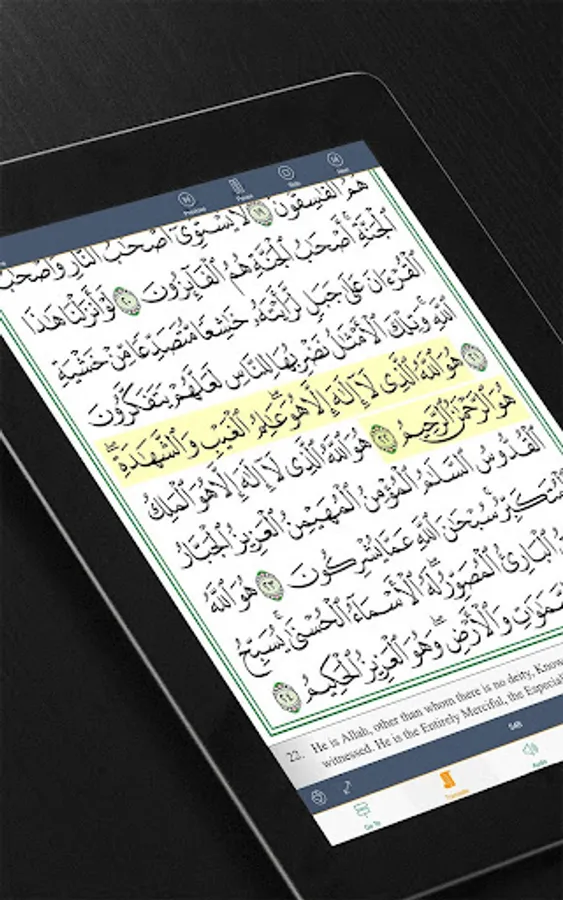 Previous Pause Stop Next
هُمُ ٱلْفَٰسِقُونَ ١٩ لَا يَسْتَوِىٓ أَصْحَٰبُ ٱلنَّارِ وَأَصْحَٰبُ
ٱلْجَنَّةِ أَصْحَٰبُ ٱلْجَنَّةِ هُمُ ٱلْفَآئِزُونَ ٢٠ لَوْ أَنزَلْنَا هَٰذَا
ٱلْقُرْءَانَ عَلَىٰ جَبَلٍ لَّرَأَيْتَهُۥ خَٰشِعًا مُّتَصَدِّعًا مِّنْ خَشْيَةِ
ٱللَّهِ وَتِلْكَ ٱلْأَمْثَٰلُ نَضْرِبُهَا لِلنَّاسِ لَعَلَّهُمْ يَتَفَكَّرُونَ
٢١ هُوَ ٱللَّهُ ٱلَّذِى لَآ إِلَٰهَ إِلَّا هُوَ عَٰلِمُ ٱلْغَيْبِ وَٱلشَّهَٰدَةِ
هُوَ ٱلرَّحْمَٰنُ ٱلرَّحِيمُ ٢٢ هُوَ ٱللَّهُ ٱلَّذِى لَآ إِلَٰهَ إِلَّا هُوَ ٱلْمَلِكُ
ٱلْقُدُّوسُ ٱلسَّلَٰمُ ٱلْمُؤْمِنُ ٱلْمُهَيْمِنُ ٱلْعَزِيزُ ٱلْجَبَّارُ
ٱلْمُتَكَبِّرُ سُبْحَٰنَ ٱللَّهِ عَمَّا يُشْرِكُونَ ٢٣ هُوَ ٱللَّهُ
ٱلْبَارِئُ ٱلْمُصَوِّرُ لَهُ ٱلْأَسْمَآءُ ٱلْحُسْنَىٰ يُسَبِّحُ
ٱلسَّمَٰوَٰتِ وَٱلْأَرْضِ وَهُوَ ٱلْعَزِيزُ ٱلْحَكِيمُ ٢٤
22. He is Allah, other than whom there is no deity, Know
witnessed. He is the Entirely Merciful, the Especial
548
Go To Translate Audio